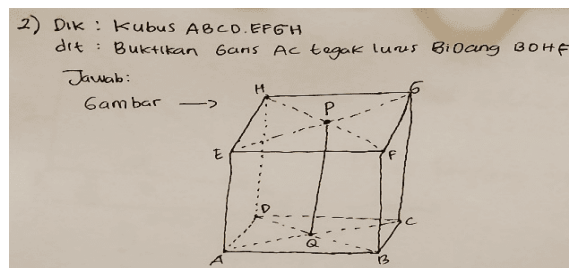 2) Dik : Kubus ABCD.EFGH
dit : Buktikan Garis AC tegak lurus Bidang BDHF
Jawab:
Gambar →
H
G
P
E
F
D
C
Q
A
B